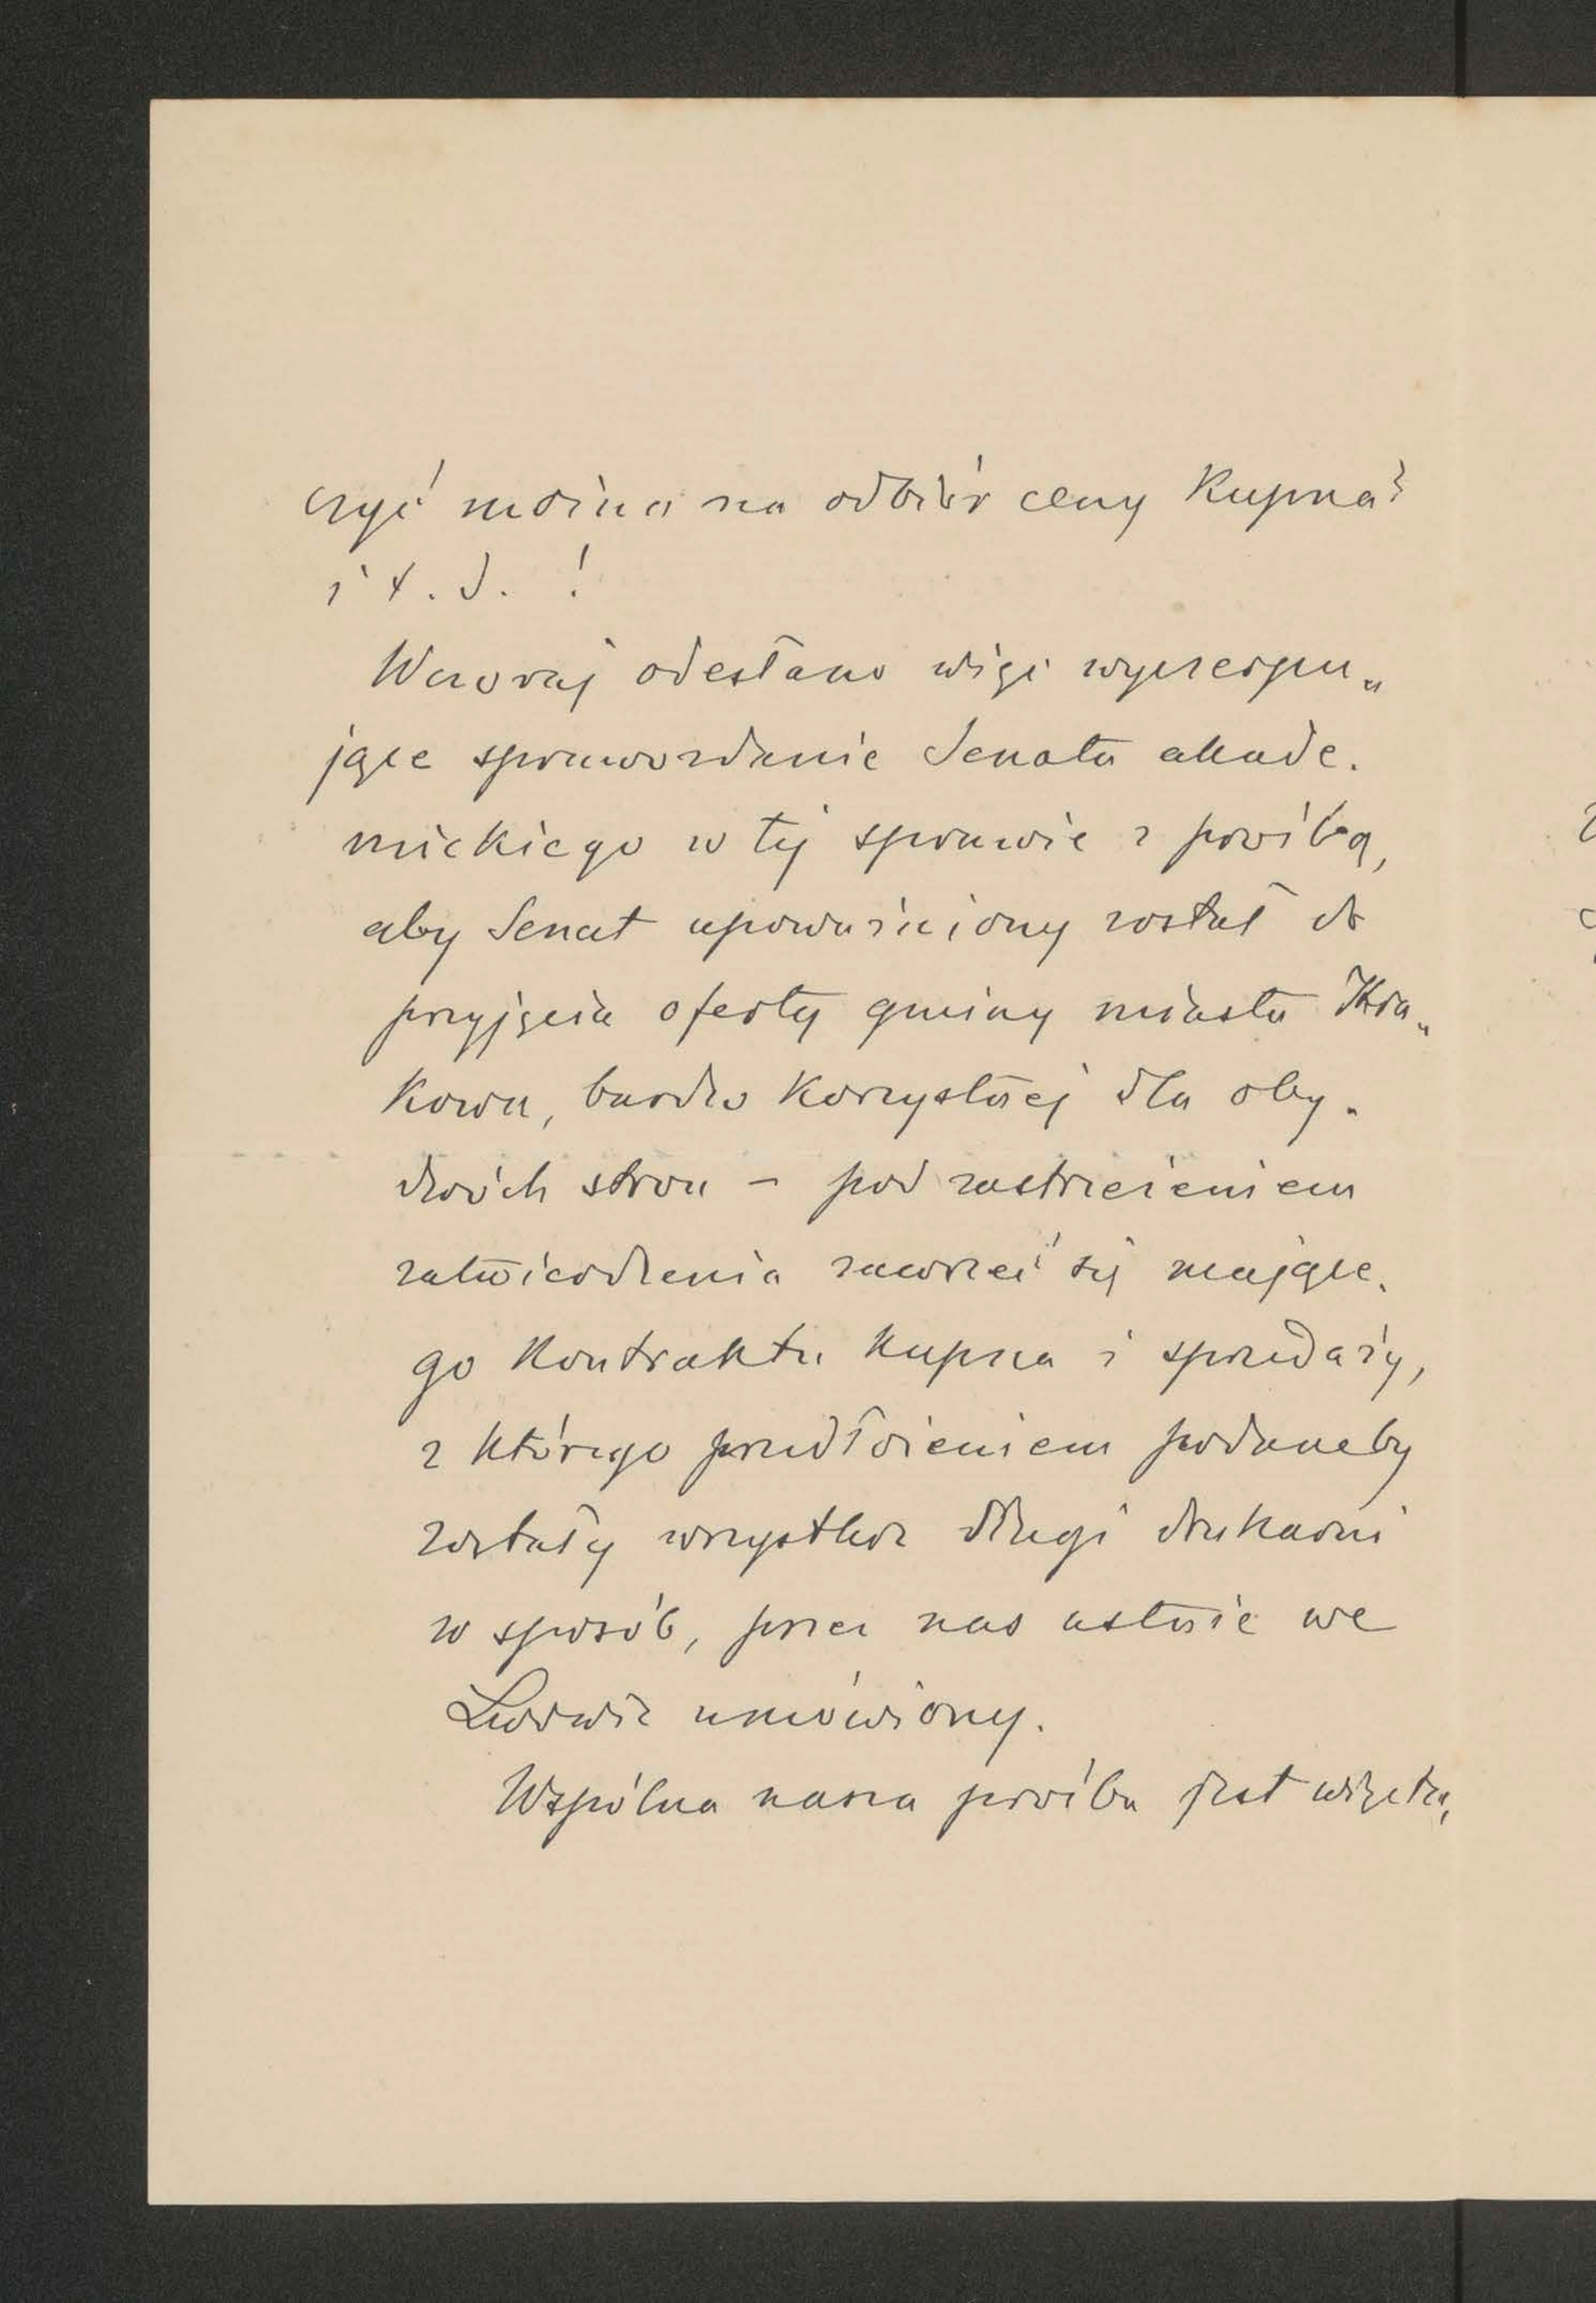 czyć można na odbiór ceny kupna?
i t. d. !
Wczoraj odesłano więc wyczerpu„
jące sprawozdanie Senatu akade.
mickiego w tej sprawie z prośbą,
aby Senat upoważniony został do
przyjęcia oferty gminy miasta Kra„
kowa, bardzo korzystnej dla oby.
dwóch stron – pod zastrzeżeniem
zatwierdzenia zawrzeć się mające.
go kontraktu kupna i sprzedaży,
z którego przedłożeniem podaneby
zostały wszystkie długi drukarni
w sposób, przez nas ustnie we
Lwowie umówiony.
Wspólna nasza prośba jest więc